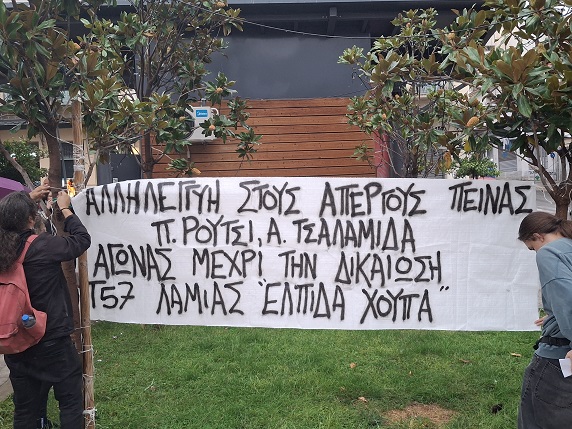 ΑΛΛΗΛΕΓΓΥΗ ΣΤΟΥΣ ΑΠΕΡΓΟΥΣ ΠΕΙΝΑΣ
Π. ΡΟΥΤΣΙ, Α. ΤΣΑΛΑΜΙΔΑ
ΑΓΩΝΑΣ ΜΕΧΡΙ ΤΗΝ ΔΙΚΑΙΩΣΗ
Τ57 ΛΑΜΙΑΣ "ΕΛΠΙΔΑ ΧΟΥΠΑ"